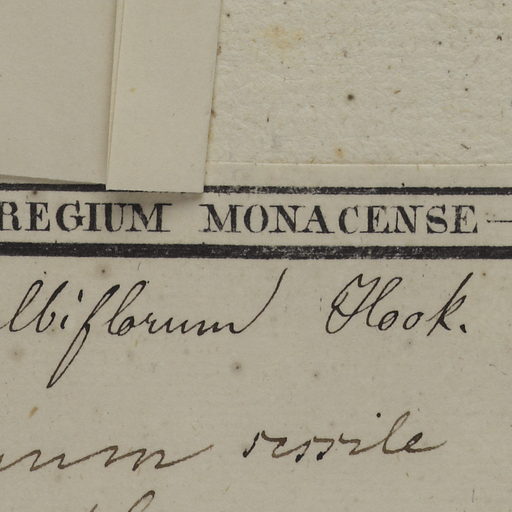 REGIUM MONACENSE —
lbiflorum Hook.
num sessile